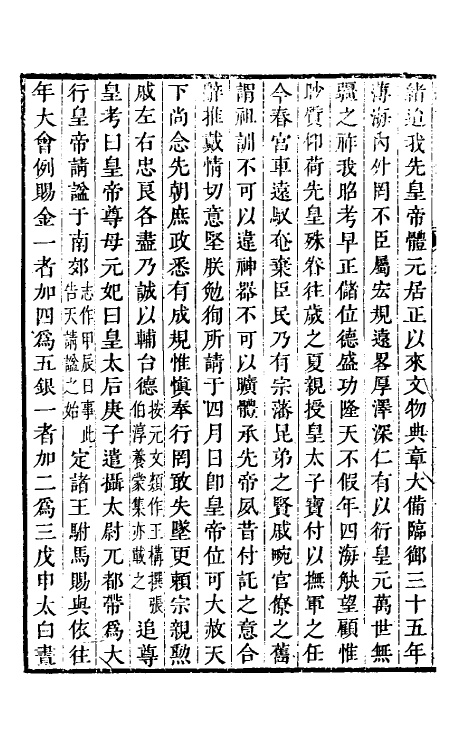 緒迨我先皇帝體元居正以來文物典章大備臨御三十五年
薄海內外罔不臣屬宏規遠畧厚澤深仁有以衍皇元萬世無
疆之祚我昭考早正儲位德盛功隆天不假年四海觖望顧惟
眇質仰荷先皇殊眷往歲之夏親授皇太子寶付以撫軍之任
今春宮車遠馭奄棄臣民乃有宗藩昆弟之賢戚畹官僚之舊
謂祖訓不可以違神器不可以曠體承先帝夙昔付託之意合
辭推戴情切意堅朕勉徇所請于四月日卽皇帝位可大赦天
下尚念先朝庶政悉有成規惟愼奉行罔敢失墜更賴宗親勲
戚左右忠良各盡乃誠以輔台德按元文類作王構撰張伯淳養蒙集亦載之追尊
皇考曰皇帝尊母元妃曰皇太后庚子遣攝太尉兀都帶爲大
行皇帝請諡于南郊志作甲辰日事此告天請諡之始定諸王駙馬賜與依往
年大會例賜金一者加四爲五銀一者加二爲三戊申太白晝